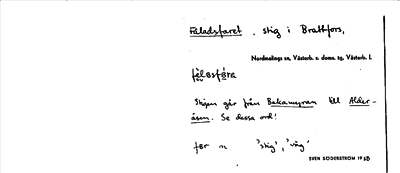 Feladsfaret, stig i Brattfors,
Nordmalings sn, Västerb. s. doms. tg, Västerb. l.
Stigen går från Bakamyran till Alder-
åsen. Se dessa ord!
far n 'stig', 'väg'
SVEN SÖDERSTRÖM 1958